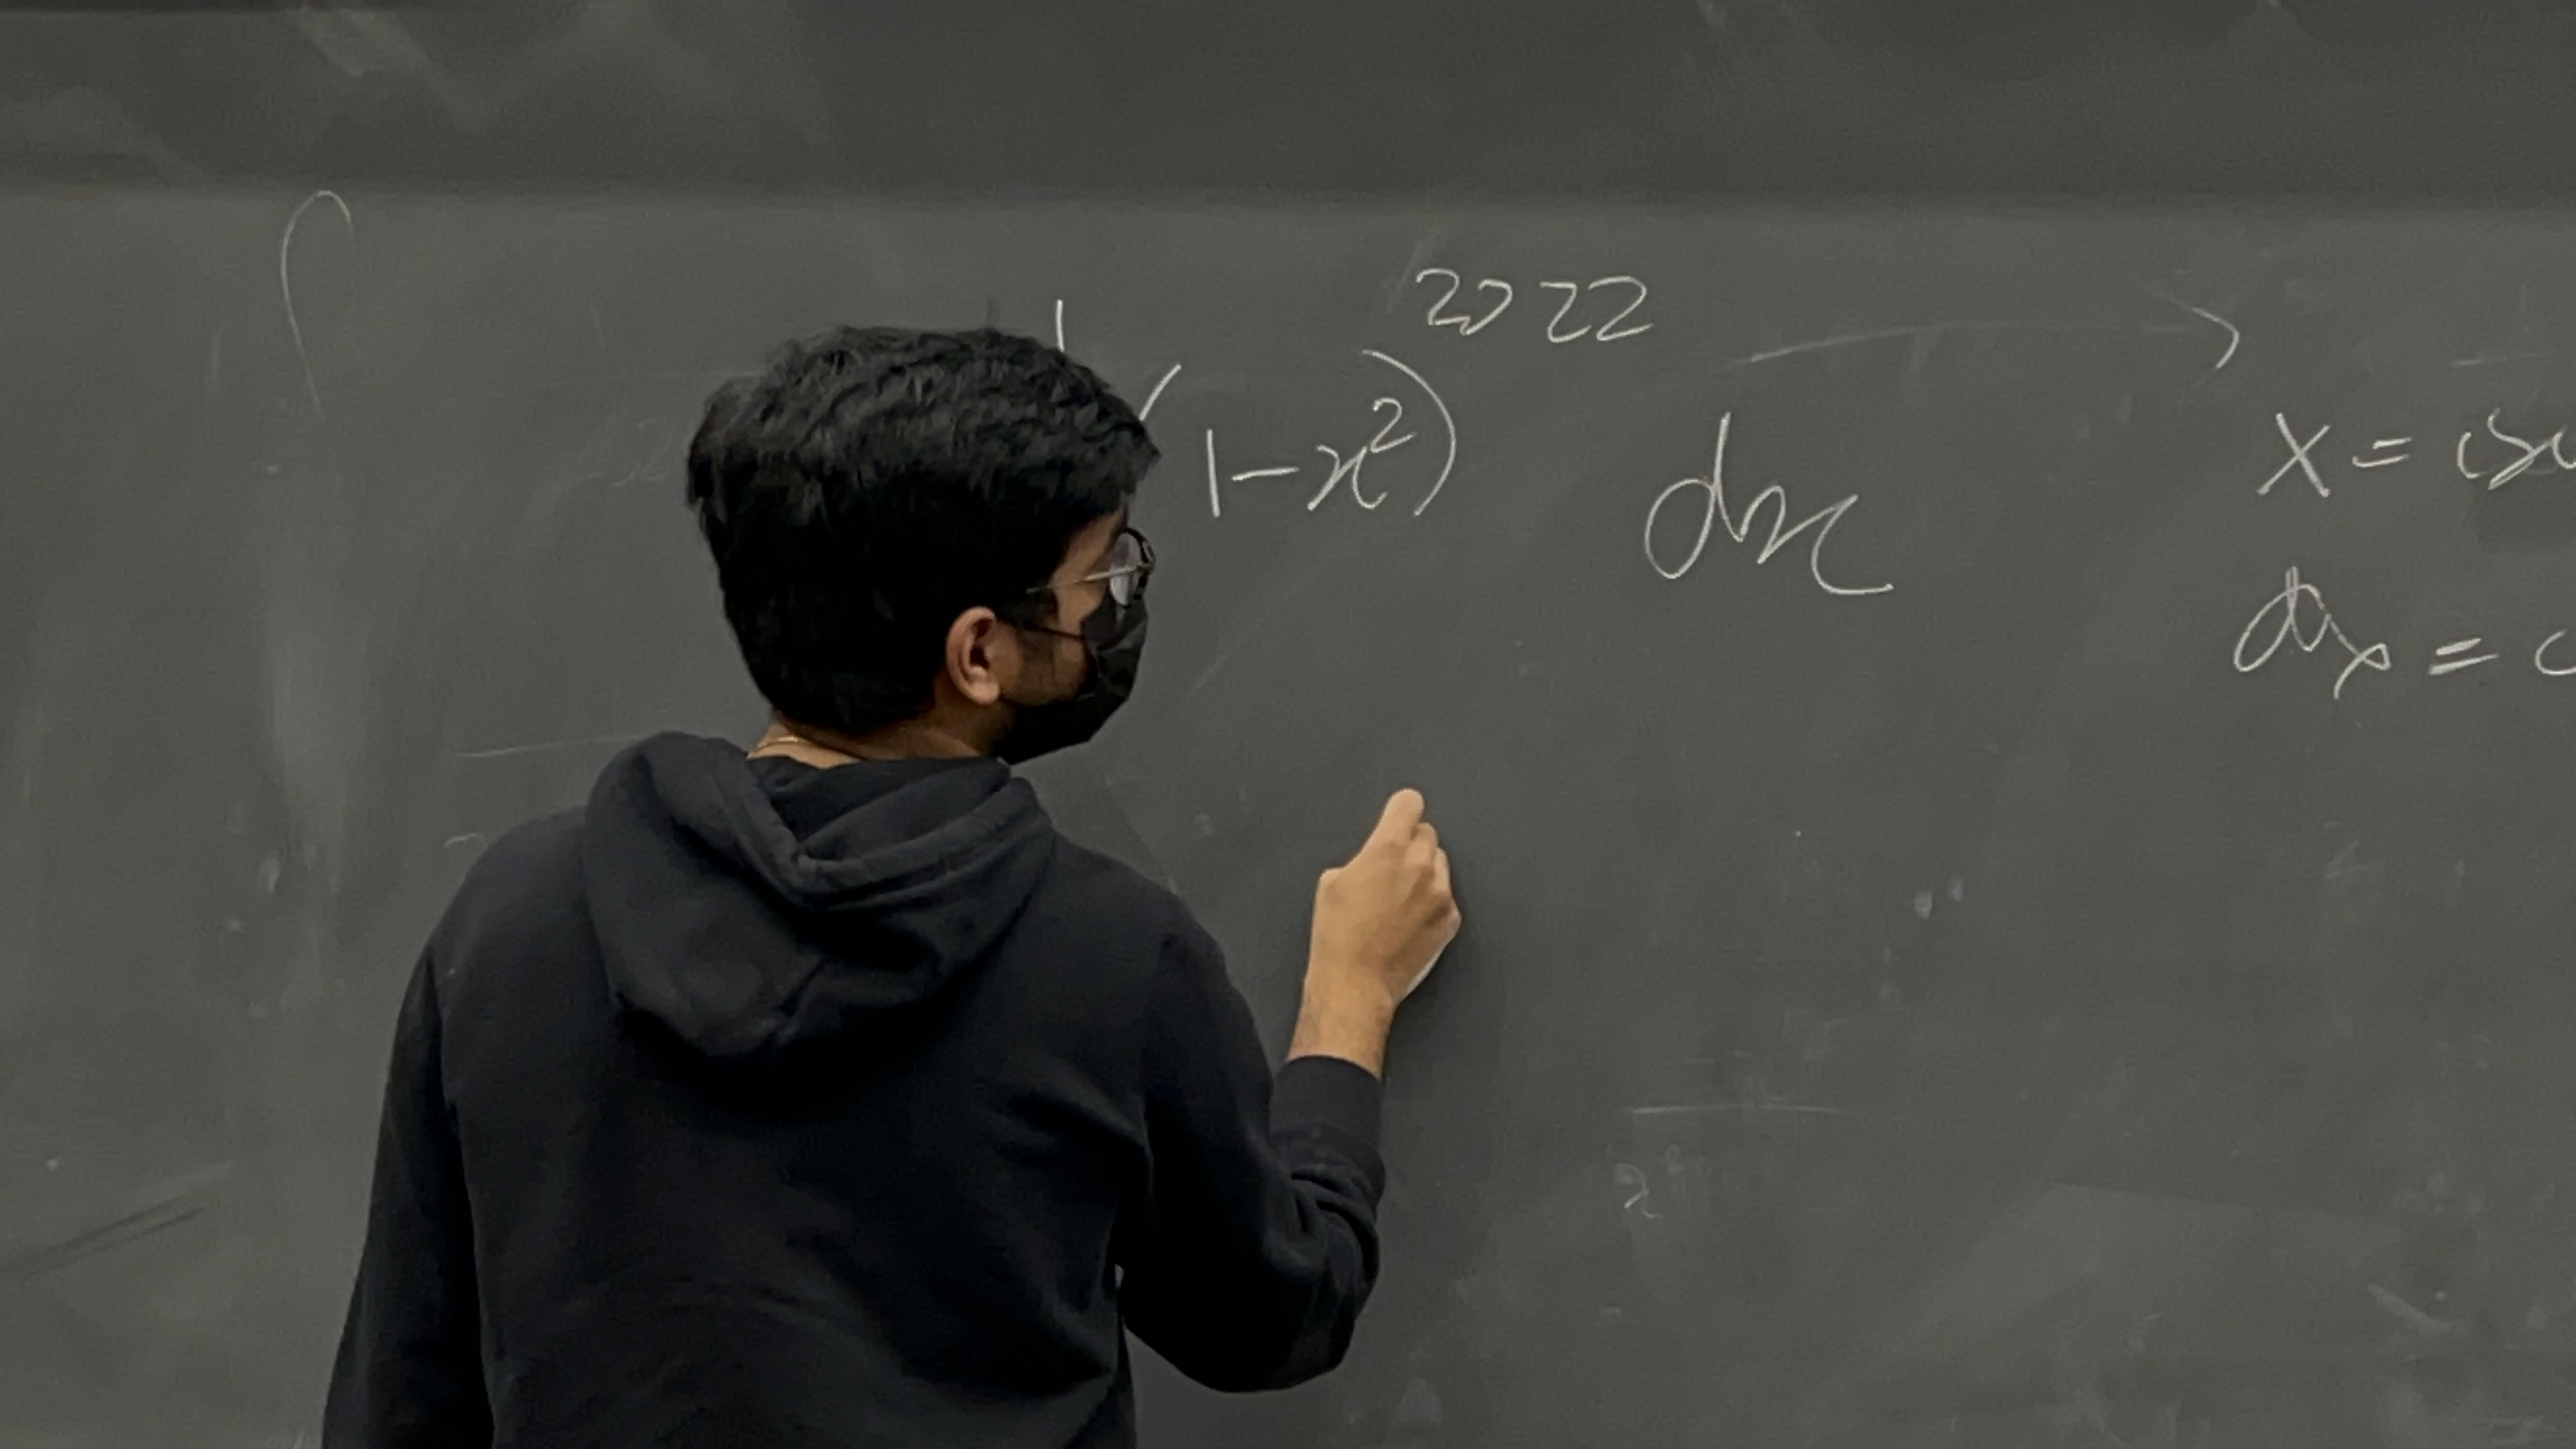 (1-x²)²⁰²² dx →
x =
dx =